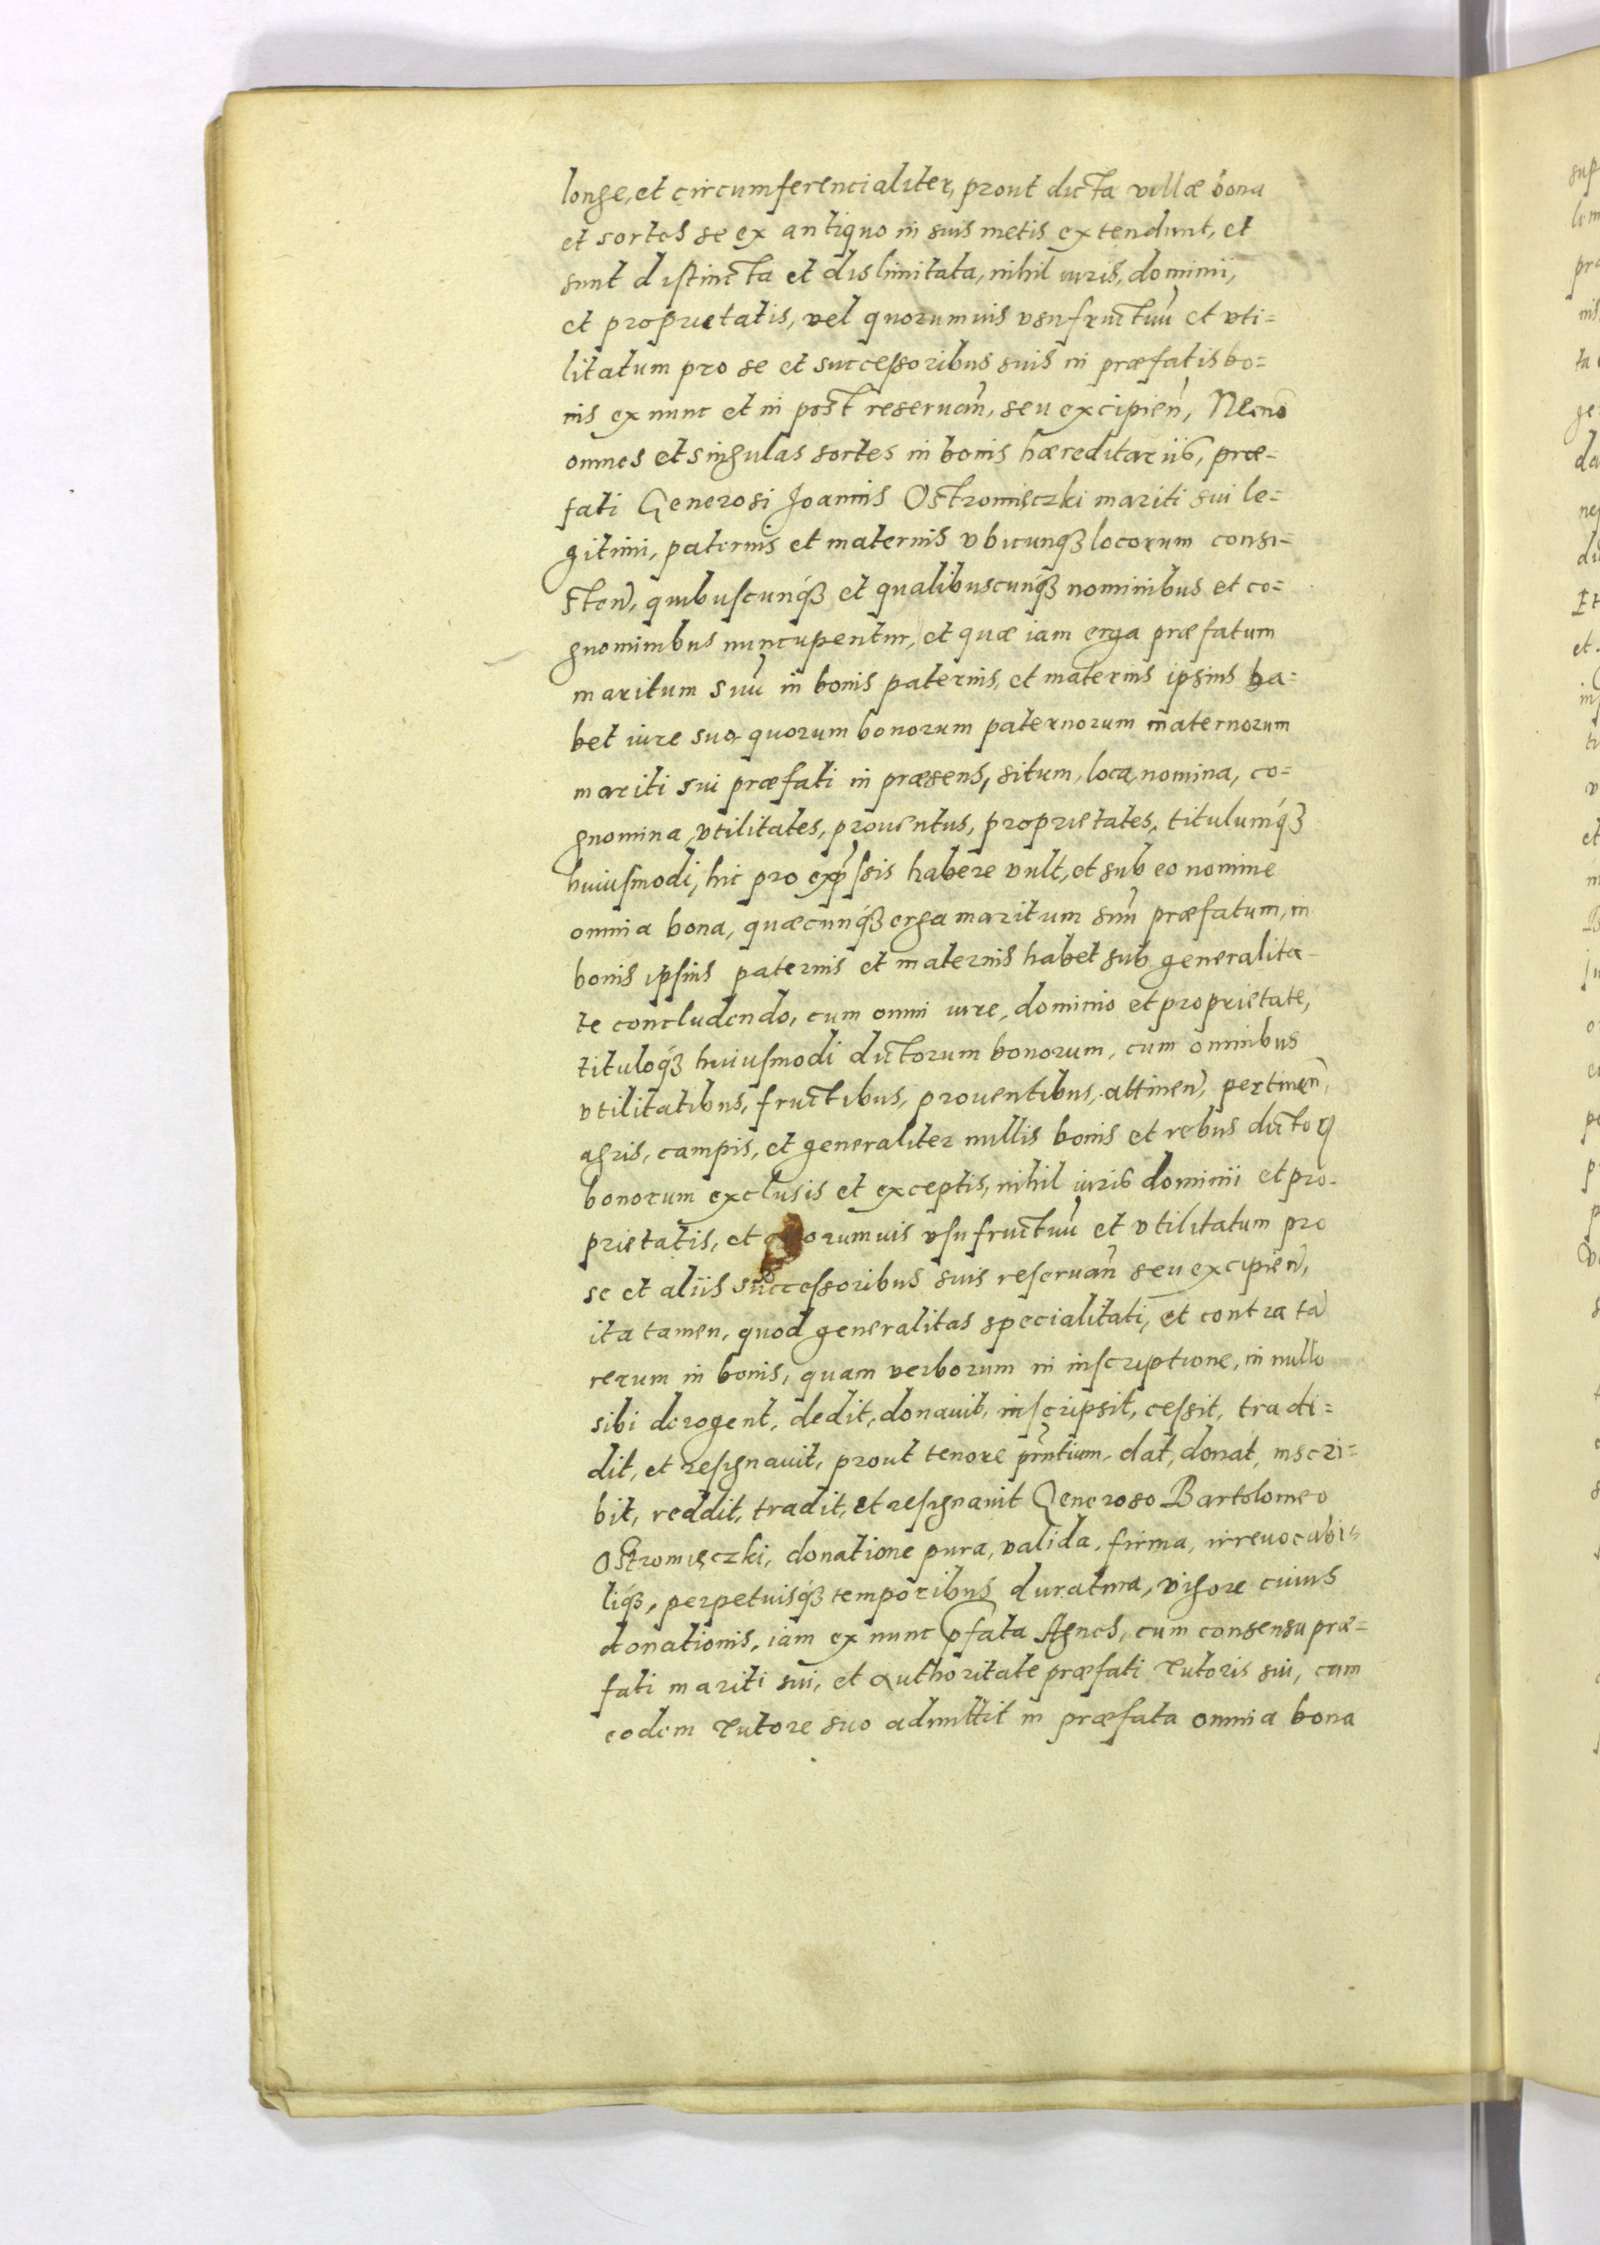 longe, et circumferencialiter, prout dicta villæ bona
et sortes se ex antiquo in suis metis extendunt, et
sunt distincta et dislimitata, nihil iuris, dominii,
et proprietatis, vel quorumuis vsufructuū et vti=
litatum pro se et successoribus suis in præfatis bo=
nis ex nunc et in post reseruan̄, seu excipien̄, Necnō
omnes et singulas sortes in bonis hæreditariis, præ=
fati Generosi Joannis Ostromięczki mariti sui le=
gitimi, paternis et maternis vbicunq́ꝫ locorum consi=
sten̄, quibuscunq́ꝫ et qualibuscunq́ꝫ nominibus et co=
gnominibus nuncupentur, et quæ iam erga præfatum
maritum suū in bonis paternis, et maternis ipsius ha=
bet iure suo quorum bonorum paternorum maternorum
mariti sui præfati in præsens, situm, loca, nomina, co=
gnomina, vtilitates, prouentus, proprietates, titulumq́ꝫ
huiusmodi, hic pro exp̄ssis habere vult, et sub eo nomine
omnia bona, quæcunq́ꝫ erga maritum suū præfatum, in
bonis ipsius paternis et maternis habet sub generalita=
te concludendo, cum omni iure, dominio et proprietate,
tituloq́ꝫ huiusmodi dictorum bonorum, cum omnibus
vtilitatibus, fructibus, prouentibus, attinen̄, pertinen̄,
agris, campis, et generaliter nullis bonis et rebus dictoꝝ
bonorum exclusis et exceptis, nihil iuris dominii et pro=
prietatis, et quorumuis vsufructuū et vtilitatum pro
se et aliis successoribus suis reseruan̄ seu excipien̄,
ita tamen, quod generalitas specialitati, et contra tā
rerum in bonis, quam verborum in inscriptione, in nullo
sibi derogent, dedit, donauit, inscripsit, cessit, tradi=
dit, et resignauit, prout tenore pn̄tium, dat, donat, inscri=
bit, reddit, tradit, et resignauit Generoso Bartolomeo
Ostromięczki, donatione pura, valida, firma, irreuocabi=
liq́ꝫ, perpetuisq́ꝫ temporibus duratura, vigore cuius
donationis, iam ex nunc p̄fata Agnes, cum consensu præ=
fati mariti sui, et authoritate præfati Tutoris sui, cum
eodem Tutore suo admittit in præfata omnia bona